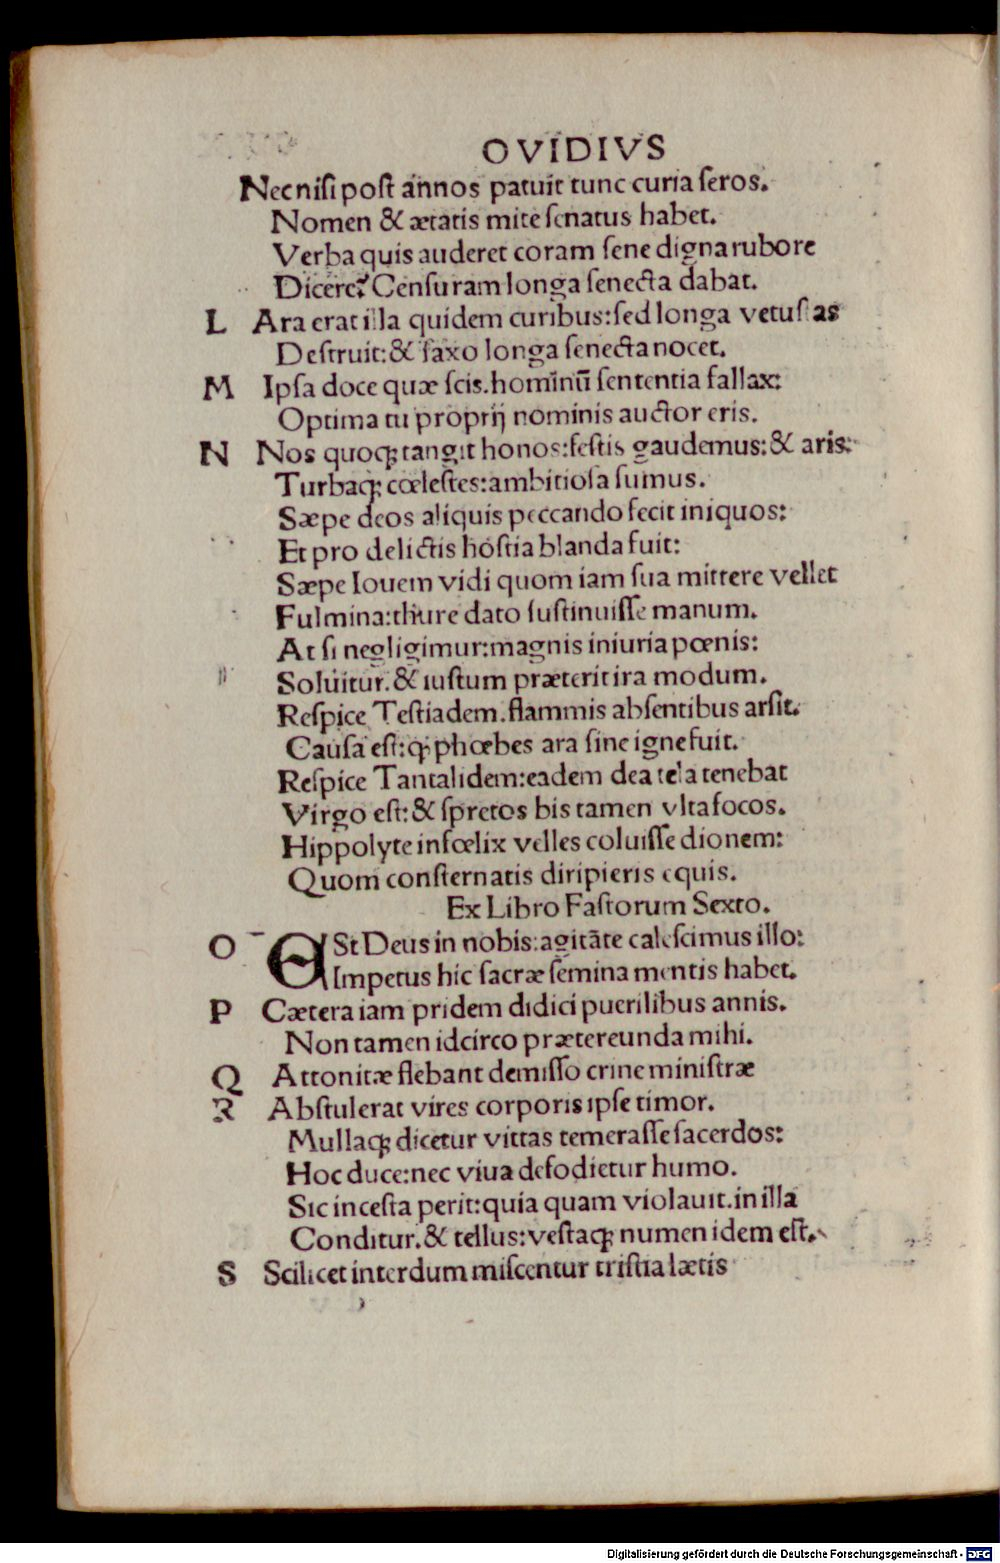 OVIDIVS
Nec nisi post annos patuit tunc curia seros.
Nomen & ætatis mite senatus habet.
Verba quis auderet coram sene digna rubore
Dicere? Censuram longa senecta dabat.
L Ara erat illa quidem curibus: sed longa vetustas
Destruit: & saxo longa senecta nocet.
M Ipsa doce quæ scis. hominū sententia fallax:
Optima tu proprij nominis auctor eris.
N Nos quoq; tangit honos: festis gaudemus: & aris:
Turbaq; cœlestes: ambitiosa sumus.
Sæpe deos aliquis peccando fecit iniquos:
Et pro delictis hostia blanda fuit:
Sæpe Iouem vidi quom iam sua mittere vellet
Fulmina: thure dato sustinuisse manum.
At si negligimur: magnis iniuria pœnis:
Soluitur. & iustum præterit ira modum.
Respice Testiadem. flammis absentibus arsit.
Causa est: q phœbes ara sine igne fuit.
Respice Tantalidem: eadem dea tela tenebat
Virgo est: & spretos bis tamen vlta focos.
Hippolyte infœlix velles coluisse dionem:
Quom consternatis diripieris equis.
Ex Libro Fastorum Sexto.
O ESt Deus in nobis: agitāte calescimus illo:
Impetus hic sacræ semina mentis habet.
P Cætera iam pridem didici puerilibus annis.
Non tamen idcirco prætereunda mihi.
Q Attonitæ flebant demisso crine ministræ
R Abstulerat vires corporis ipse timor.
Mullaq; dicetur vittas temerasse sacerdos:
Hoc duce: nec viua defodietur humo.
Sic incesta perit: quia quam violauit. in illa
Conditur. & tellus: vestaq; numen idem est.
S Scilicet interdum miscentur tristia lætis
Digitalisierung gefördert durch die Deutsche Forschungsgemeinschaft - DFG